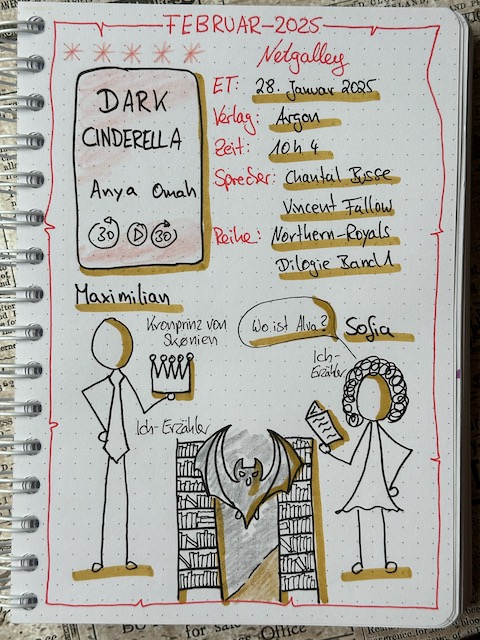 FEBRUAR-2025
Netgalley
DARK
CINDERELLA
Anya Omah
30 30
ET: 28. Januar 2025
Verlag: Argon
Zeit: 10h 4
Sprecher: Chantal Busse
Vincent Fallow
Reihe: Northern-Royals
Dilogie Band 1
Maximilian
Kronprinz von
Skønien
Ich-Erzähler
Wo ist Alva?
Sofia
Ich-
Erzähler